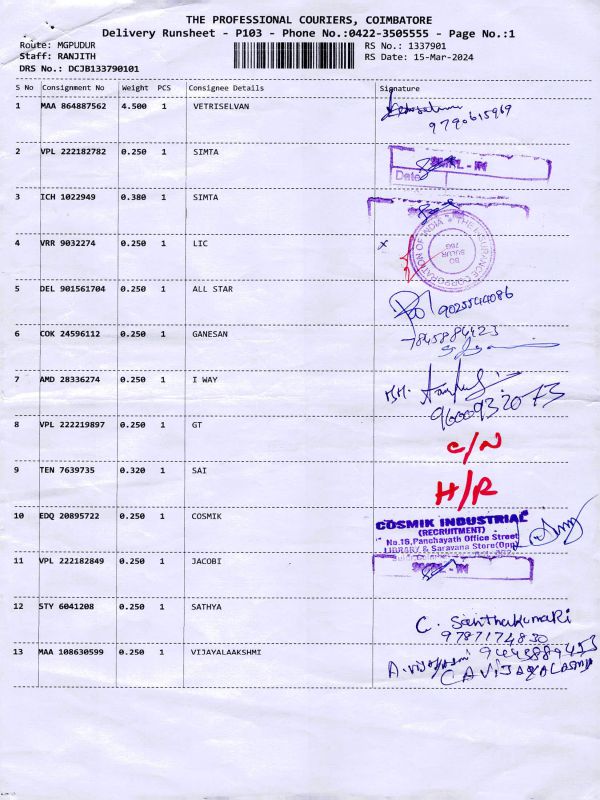 THE PROFESSIONAL COURIERS, COIMBATORE
Delivery Runsheet - P103 - Phone No.:0422-3505555 - Page No.:1
Route: MGPUDUR RS No.: 1337901
Staff: RANJITH RS Date: 15-Mar-2024
DRS No.: DCJB133790101
S No Consignment No Weight PCS Consignee Details Signature
1 MAA 864887562 4.500 1 VETRISELVAN
9790615969
2 VPL 222182782 0.250 1 SIMTA
Date
3 ICH 1022949 0.380 1 SIMTA
4 VRR 9032274 0.250 1 LIC X
THE INSURANCE CORPORATION OF INDIA
BO
SULUR
76G
5 DEL 901561704 0.250 1 ALL STAR
9025544086
6 COK 24596112 0.250 1 GANESAN
7845884423
7 AMD 28336274 0.250 1 I WAY
9600932073
8 VPL 222219897 0.250 1 GT
C/N
9 TEN 7639735 0.320 1 SAI
H/R
10 EDQ 20895722 0.250 1 COSMIK
COSMIK INDUSTRIAL
(RECRUITMENT)
No.16,Panchayath Office Street
LIBRARY & Saravana Store(Opp)
11 VPL 222182849 0.250 1 JACOBI
12 STY 6041208 0.250 1 SATHYA
C. Santhakumari
9787174830
13 MAA 108630599 0.250 1 VIJAYALAAKSHMI